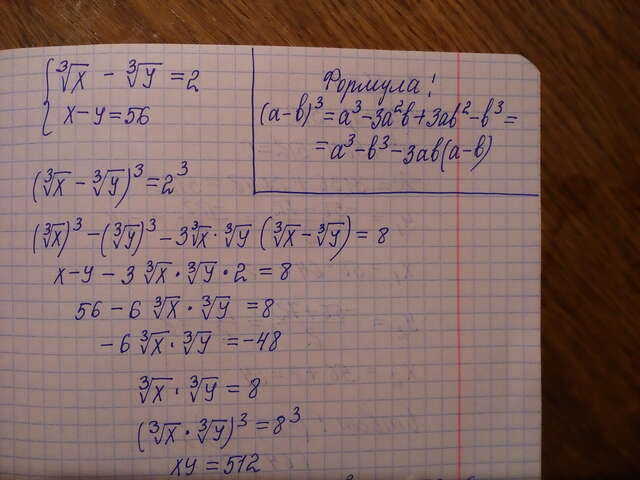 ∛x - ∛y = 2
x-y=56
Формула!
(a-b)³=a³-3a²b+3ab²-b³=
=a³-b³-3ab(a-b)
(∛x - ∛y)³=2³
(∛x)³-(∛y)³-3∛x·∛y (∛x-∛y)=8
x-y-3∛x·∛y·2=8
56-6∛x·∛y=8
-6∛x·∛y=-48
∛x·∛y=8
(∛x·∛y)³=8³
xy=512